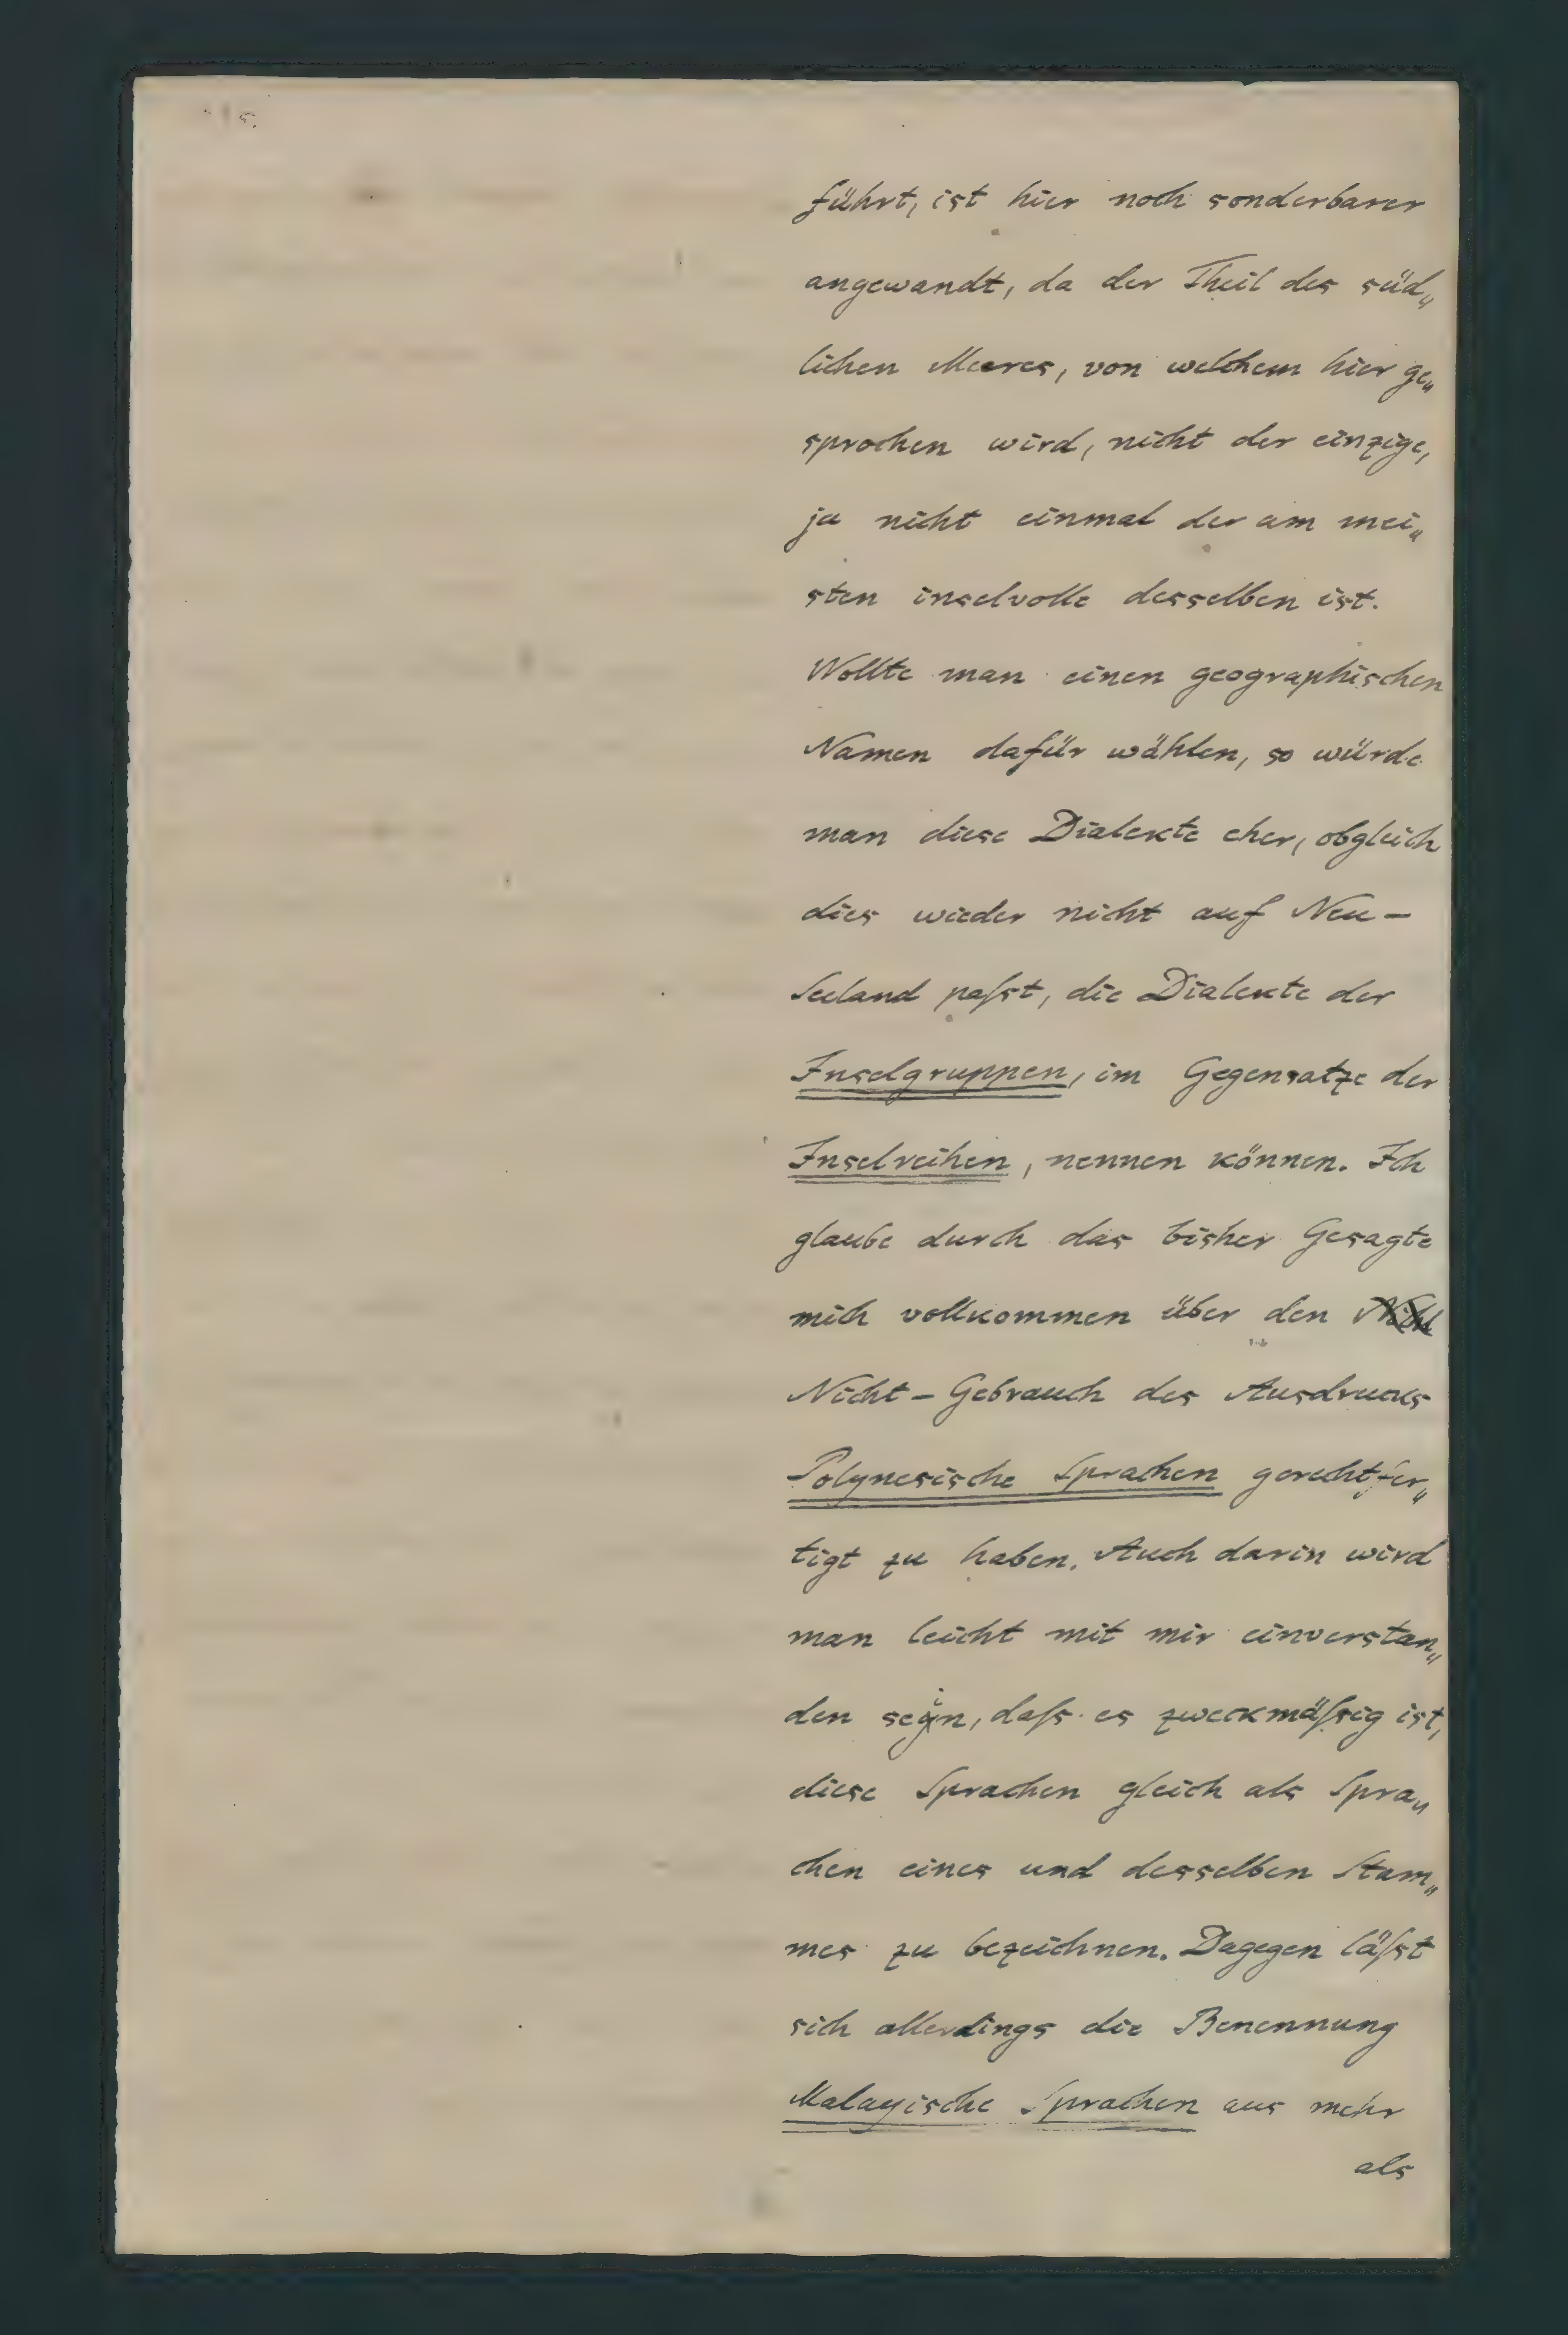 führt, ist hier noch sonderbarer
angewandt, da der Theil des süd„
lichen Meeres, von welchem hier ge„
sprochen wird, nicht der einzige,
ja nicht einmal der am mei„
sten inselvolle desselben ist.
Wollte man einen geographischen
Namen dafür wählen, so würde
man diese Dialekte eher, obgleich
dies wieder nicht auf Neu-
Seeland paſst, die Dialekte der
Inselgruppen, im Gegensatze der
Inselreihen, nennen können. Ich
glaube durch das bisher Gesagte
mich vollkommen über den Nicht
Nicht-Gebrauch des Ausdrucks
Polynesische Sprachen gerechtfer„
tigt zu haben. Auch darin wird
man leicht mit mir einverstan„
den seyn, daſs es zweckmäſsig ist,
diese Sprachen gleich als Spra„
chen eines und desselben Stam„
mes zu bezeichnen. Dagegen läſst
sich allerdings die Benennung
Malayische Sprachen aus mehr
als